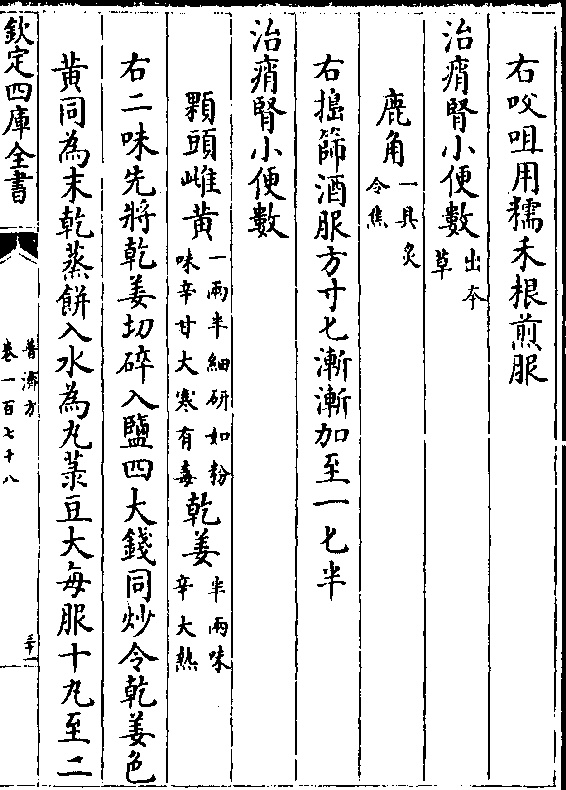 右㕮咀用糯禾根煎服
治痟腎小便數出本草
鹿角一具炙令焦
右搗篩酒服方寸匕漸漸加至一匕半
治痟腎小便數
顆頭雌黃一兩半細研如粉味辛甘大寒有毒乾姜半兩味辛大熱
右二味先將乾姜切碎入鹽四大錢同炒令乾姜色
黃同為末乾蒸餅入水為丸菉豆大每服十丸至二
欽定四庫全書
普濟方
卷一百七十八
三十一